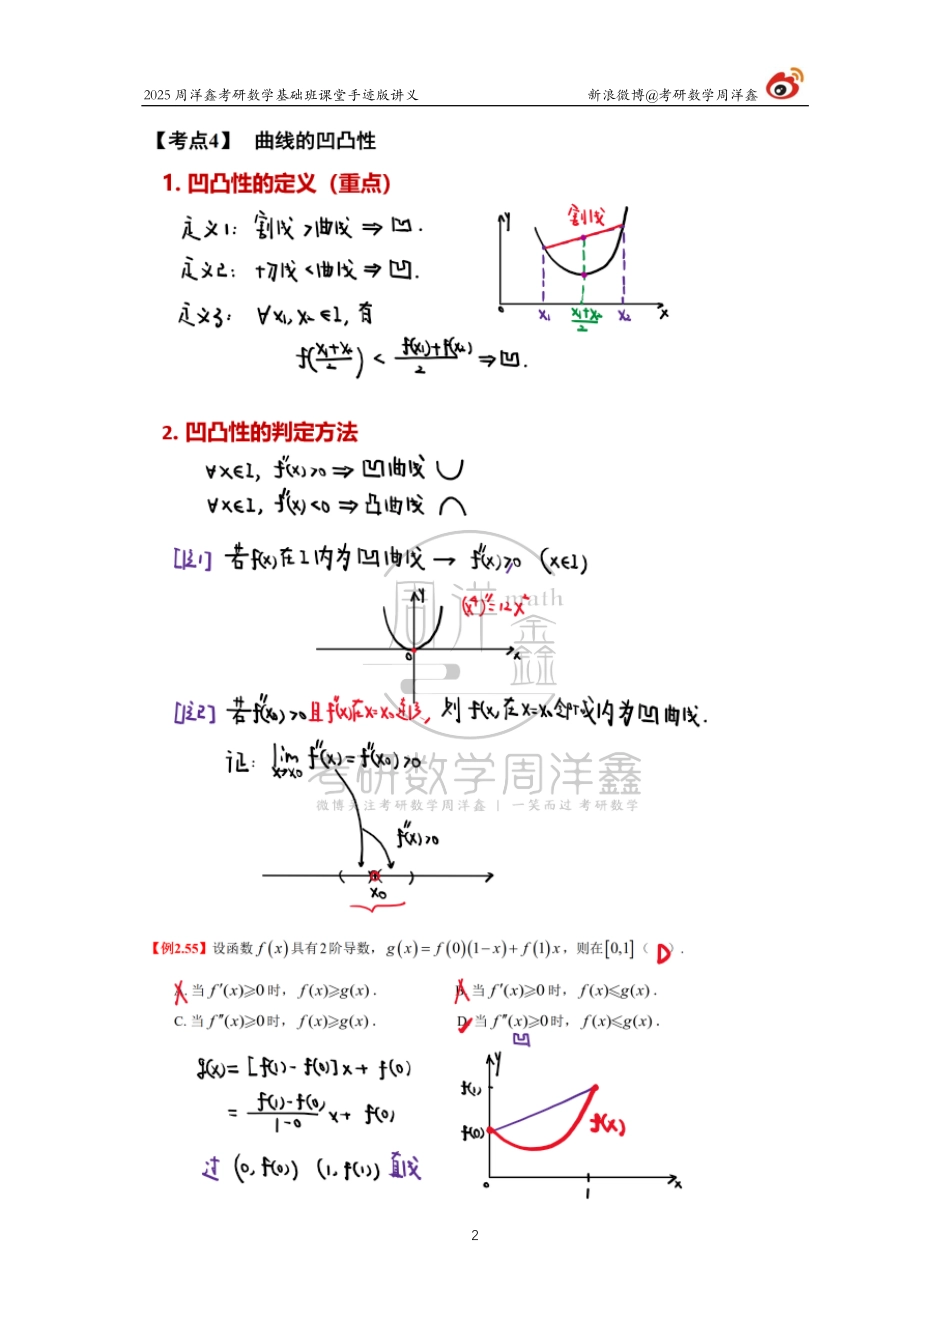 2025 周洋鑫考研数学基础班课堂手迹版讲义 新浪微博@考研数学周洋鑫
【考点4】 曲线的凹凸性
1. 凹凸性的定义（重点）
定义1: 割线>曲线 ⇒ 凹.
定义2: 切线<曲线 ⇒ 凹.
定义3: ∀x₁,x₂∈I, 有
f((x₁+x₂)/2) < (f(x₁)+f(x₂))/2 ⇒ 凹.
y 割线
0 x₁ (x₁+x₂)/2 x₂ x
2. 凹凸性的判定方法
∀x∈I, f″(x)>0 ⇒ 凹曲线 ∪
∀x∈I, f″(x)<0 ⇒ 凸曲线 ∩
[注1] 若f(x)在I内为凹曲线 → f″(x)≥0 (x∈I)
y (x⁴)″=12x²
0 x
周洋 math 鑫
[注2] 若f″(x₀)>0且f″(x)在x=x₀连续, 则f(x)在x=x₀邻域内为凹曲线.
证: lim x→x₀ f″(x)=f″(x₀)>0
考研数学周洋鑫
微博关注考研数学周洋鑫 | 一笑而过 考研数学
f″(x)>0
( x₀ )
【例2.55】设函数 f(x) 具有2阶导数，g(x)=f(0)(1−x)+f(1)x，则在[0,1]（ D ）.
A. 当 f′(x)⩾0 时，f(x)⩾g(x). B. 当 f′(x)⩾0 时，f(x)⩽g(x).
C. 当 f″(x)⩾0 时，f(x)⩾g(x). D. 当 f″(x)⩾0 时，f(x)⩽g(x).
凹
g(x)=[f(1)-f(0)]x+f(0)
= (f(1)-f(0))/(1-0) x+f(0)
过 (0,f(0)) (1,f(1)) 直线
y
f(1)
f(0) f(x)
0 1 x
2